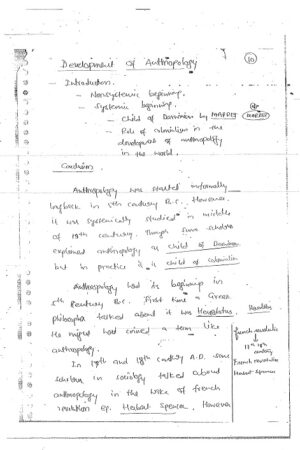 Development of Anthropology
10
- Introduction.
- Nonsystemic beginning.
- Systemic beginning.
- Child of Darwinism by MARRET
MARRET
- Role of colonialism in the
development of anthropology
in the world.
Conclusion
Anthropology was started informally
back in 5th century B.C. However
it was systemically studied in middle
of 19th century. Though some scholars
explained anthropology as child of Darwinism
but in practice it is child of colonialism
Anthropology had its beginning in
5th Century B.C. First time a Greek
philosopher talked about it was Herodotus.
He might had coined a term like
anthropology.
In 17th and 18th century A.D. some
scholars in sociology talked about
anthropology in the wake of french
revolution eg. Herbert Spencer. However
Herodotus
french revolution
17th 18th
century
French revolution
Herbert Spencer